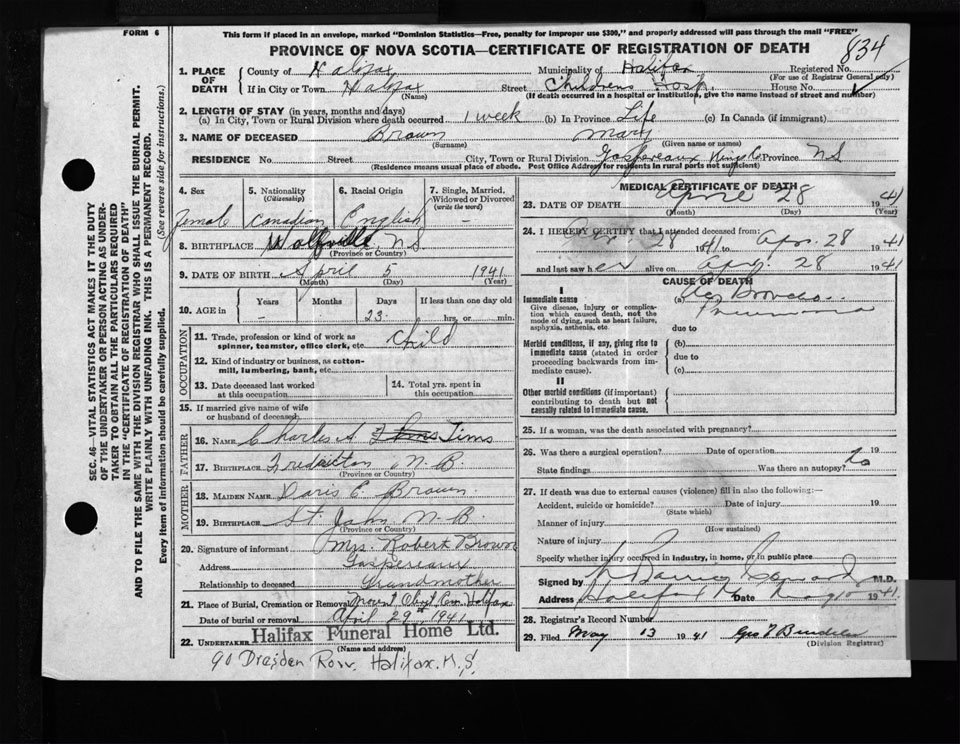 FORM 6
This form if placed in an envelope, marked "Dominion Statistics—Free, penalty for improper use $300," and properly addressed will pass through the mail "FREE"
PROVINCE OF NOVA SCOTIA—CERTIFICATE OF REGISTRATION OF DEATH
834
1. PLACE OF DEATH
County of Halifax Municipality of Halifax Registered No.
(For use of Registrar General only)
If in City or Town Halifax Street Childrens Hosp. House No.
(Name) (If death occurred in a hospital or institution, give the name instead of street and number)
2. LENGTH OF STAY (in years, months and days)
(a) In City, Town or Rural Division where death occurred 1 week (b) In Province Life (c) In Canada (if immigrant)
3. NAME OF DECEASED Brown Mary
(Surname) (Given name or names)
RESIDENCE No. Street City, Town or Rural Division Gaspereaux Kings Co. Province NS
(Residence means usual place of abode. Post Office Address for residents in rural parts not sufficient)
4. Sex 5. Nationality (Citizenship) 6. Racial Origin 7. Single, Married, Widowed or Divorced (write the word)
Female Canadian English —
8. BIRTHPLACE Wolfville, N.S.
(Province or Country)
9. DATE OF BIRTH April 5 1941
(Month) (Day) (Year)
10. AGE in Years Months Days If less than one day old
- 23 hrs. or min.
OCCUPATION
11. Trade, profession or kind of work as spinner, teamster, office clerk, etc. Child
12. Kind of industry or business, as cotton-mill, lumbering, bank, etc.
13. Date deceased last worked at this occupation
14. Total yrs. spent in this occupation
15. If married give name of wife or husband of deceased
FATHER
16. NAME Charles A. Tims
17. BIRTHPLACE Fredricton N.B.
(Province or Country)
MOTHER
18. MAIDEN NAME Doris E. Brown
19. BIRTHPLACE St. John N.B.
(Province or Country)
20. Signature of informant Mrs. Robert Brown
Address Gaspereaux
Relationship to deceased Grandmother
21. Place of Burial, Cremation or Removal Mount Olivet Cem. Halifax
Date of burial or removal April 29th 1941
22. UNDERTAKER Halifax Funeral Home Ltd.
(Name and address)
90 Dresden Row, Halifax. N.S.
MEDICAL CERTIFICATE OF DEATH
23. DATE OF DEATH April 28 1941
(Month) (Day) (Year)
24. I HEREBY CERTIFY that I attended deceased from:
Apr. 28 1941 to Apr. 28 1941
and last saw her alive on Apr. 28 1941
CAUSE OF DEATH
I
Immediate cause (a) Broncho
Give disease, injury or complication which caused death, not the mode of dying, such as heart failure, asphyxia, asthenia, etc.
Pneumonia
due to
Morbid conditions, if any, giving rise to immediate cause (stated in order proceeding backwards from immediate cause).
(b)
due to
(c)
II
Other morbid conditions (if important) contributing to death but not causally related to immediate cause.
25. If a woman, was the death associated with pregnancy?
26. Was there a surgical operation? Date of operation 19
State findings Was there an autopsy? No
27. If death was due to external causes (violence) fill in also the following:—
Accident, suicide or homicide? Date of injury 19
(State which)
Manner of injury
(How sustained)
Nature of injury
Specify whether injury occurred in industry, in home, or in public place
Signed by M.D.
Address Halifax Date May 10 1941
28. Registrar's Record Number
29. Filed May 13 1941
(Division Registrar)
SEC. 46—VITAL STATISTICS ACT MAKES IT THE DUTY
OF THE UNDERTAKER OR PERSON ACTING AS UNDER-
TAKER TO OBTAIN ALL THE PARTICULARS REQUIRED
IN THE "CERTIFICATE OF REGISTRATION OF DEATH"
AND TO FILE THE SAME WITH THE DIVISION REGISTRAR WHO SHALL ISSUE THE BURIAL PERMIT.
WRITE PLAINLY WITH UNFADING INK. THIS IS A PERMANENT RECORD.
Every item of information should be carefully supplied. (See reverse side for instructions.)